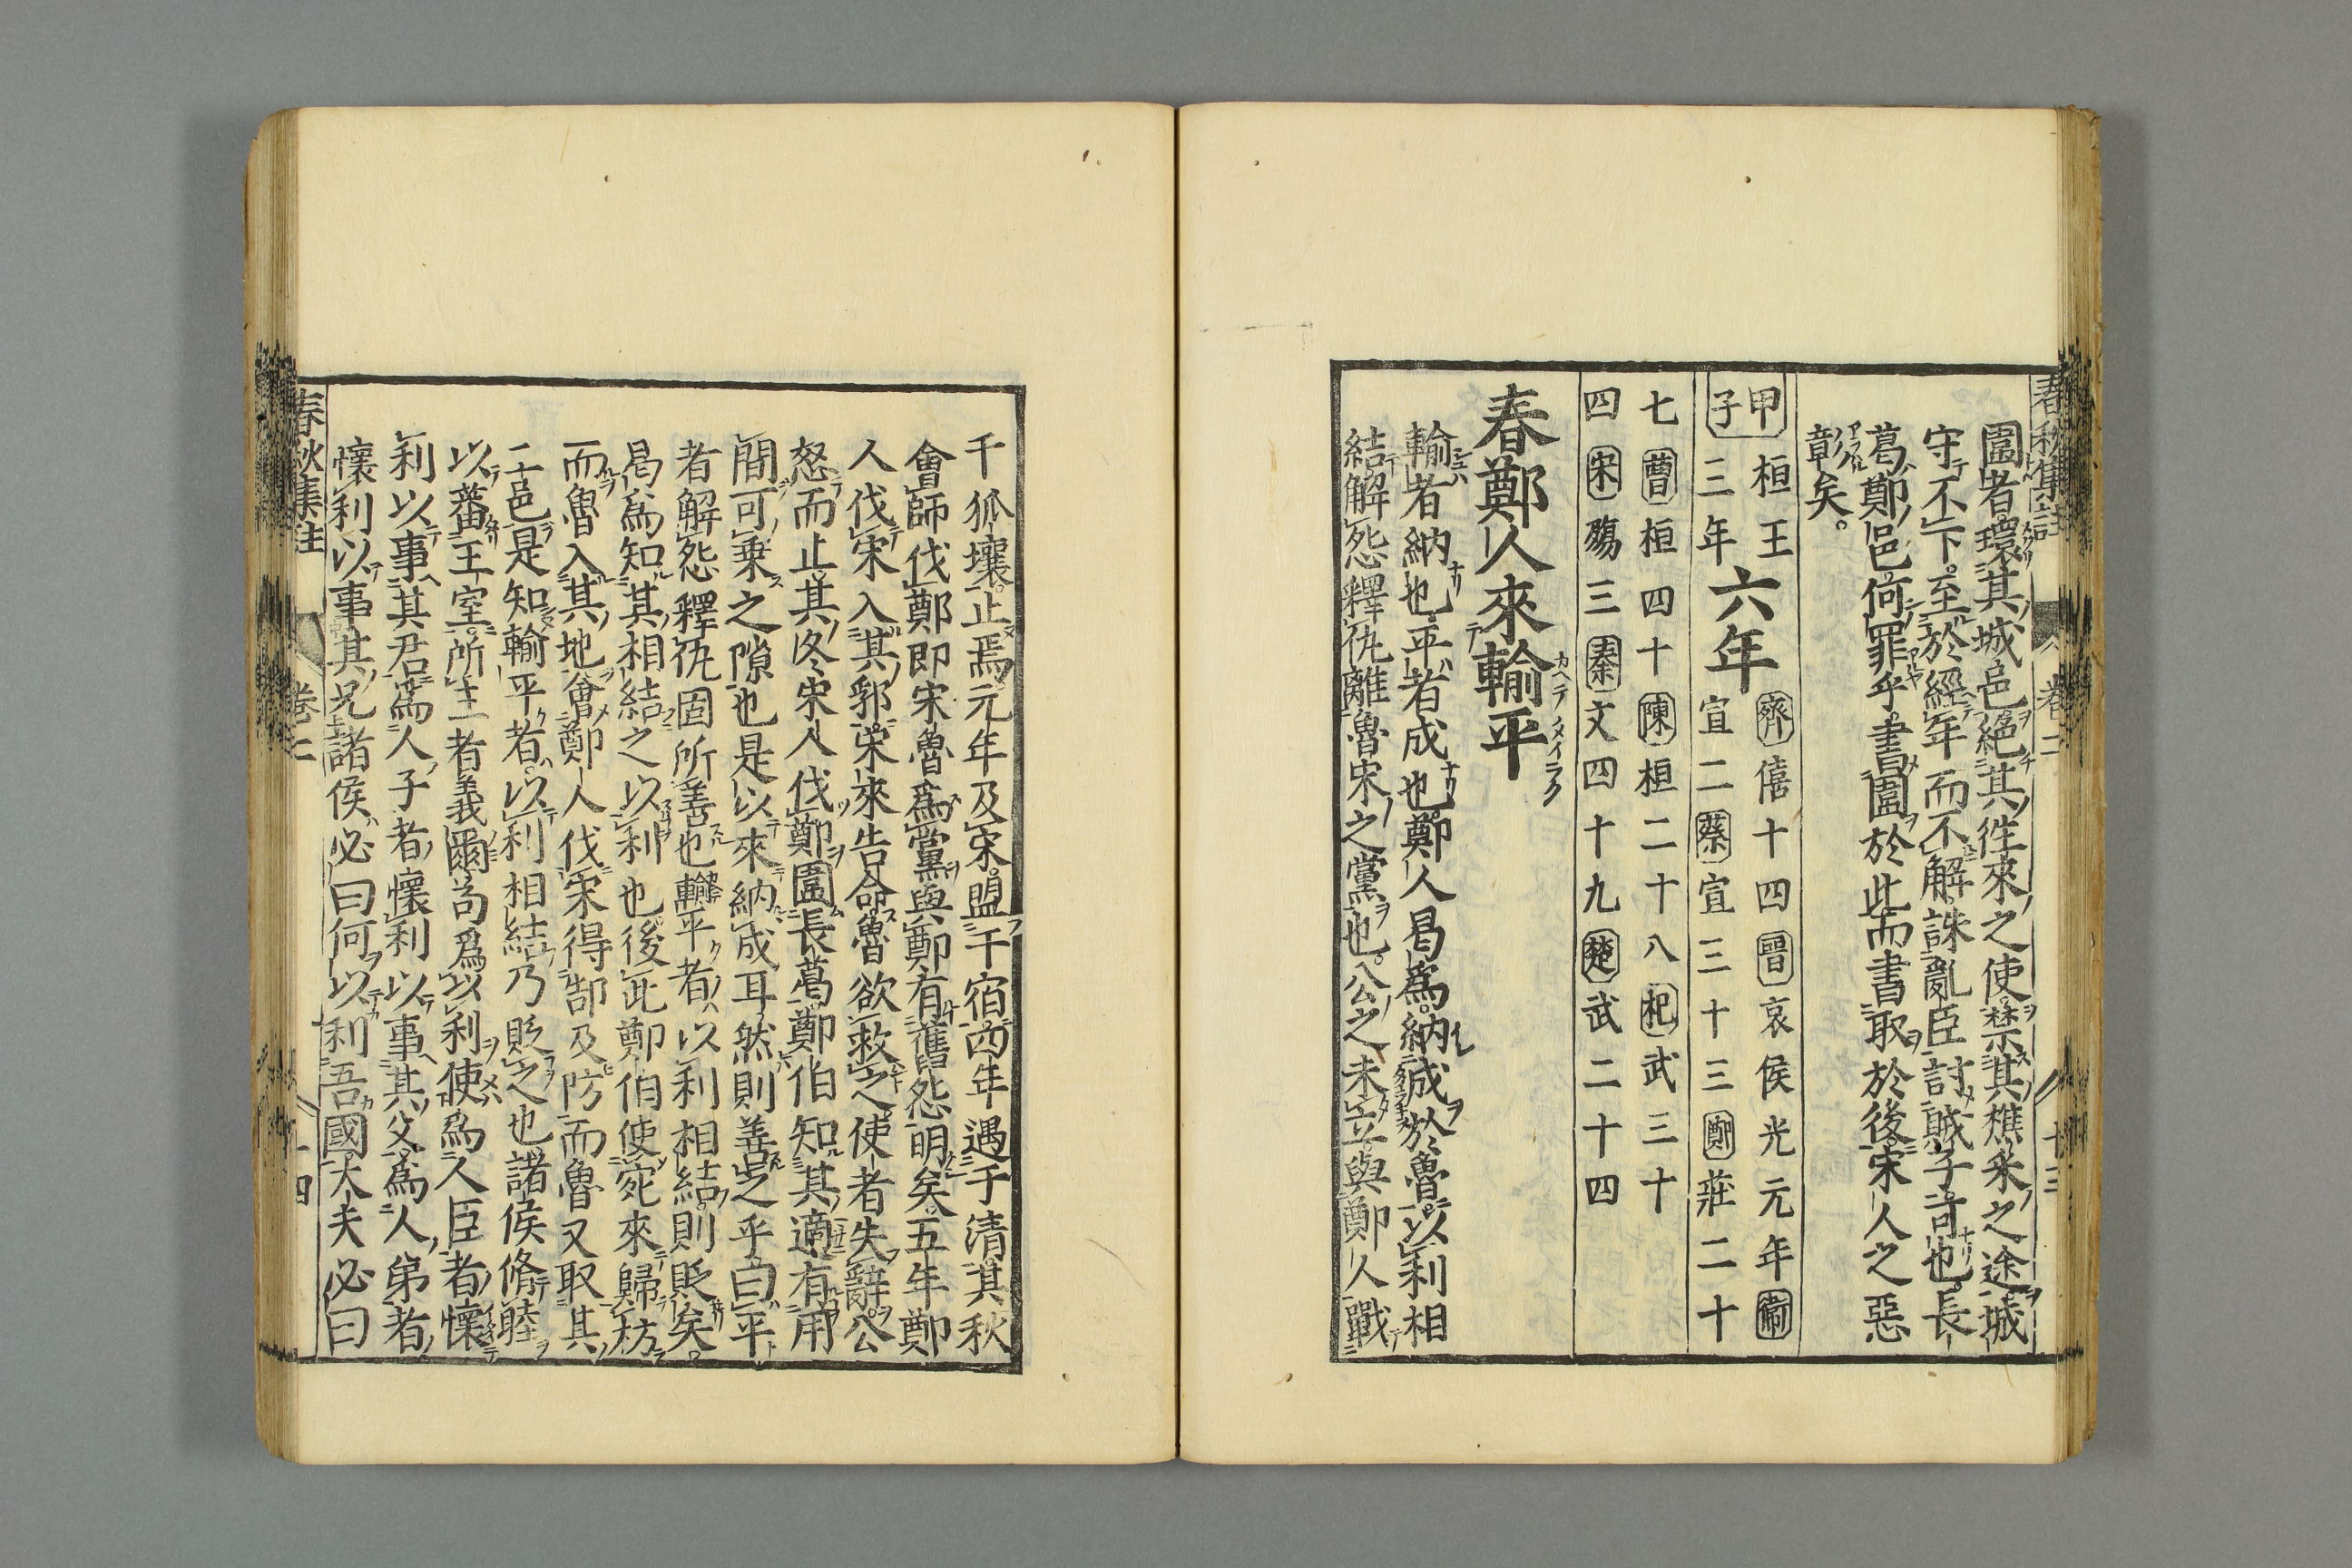 春秋集註 卷二 十三
圍者環其城邑絕其徃來之使禁其樵采之途城
守不下至於經年而不解誅亂臣討賊子可也長
葛鄭邑何罪乎書圍於此而書取於後宋人之惡
彰矣
甲子 桓王三年 六年 齊僖十四晉哀侯光元年衞宣二蔡宣三十三鄭莊二十
七曹桓四十陳桓二十八杞武三十
四宋殤三秦文四十九楚武二十四
春鄭人來輸平
輸者納也平者成也鄭人曷爲納誠於魯以利相
結解怨釋仇離魯宋之黨也公之未立與鄭人戰
于狐壤止焉元年及宋盟于宿四年遇于清其秋
會師伐鄭即宋魯爲黨與鄭有舊怨明矣五年鄭
人伐宋入其郛宋來告命魯欲救之使者失辭公
怒而止其冬宋人伐鄭圍長葛鄭伯知其適有用
間可乗之隙也是以來納成耳然則善之乎曰平
者解怨釋仇固所善也輸平者以利相結則貶矣
曷爲知其相結之以利也後此鄭伯使宛來歸祊
而魯入其地會鄭人伐宋得郜及防而魯又取其
二邑是知輸平者以利相結乃貶之也諸侯脩睦
以蕃王室所主者義爾苟爲以利使爲人臣者懷
利以事其君爲人子者懷利以事其父爲人弟者
懷利以事其兄諸侯必曰何以利吾國大夫必曰
春秋集註 卷二 十四